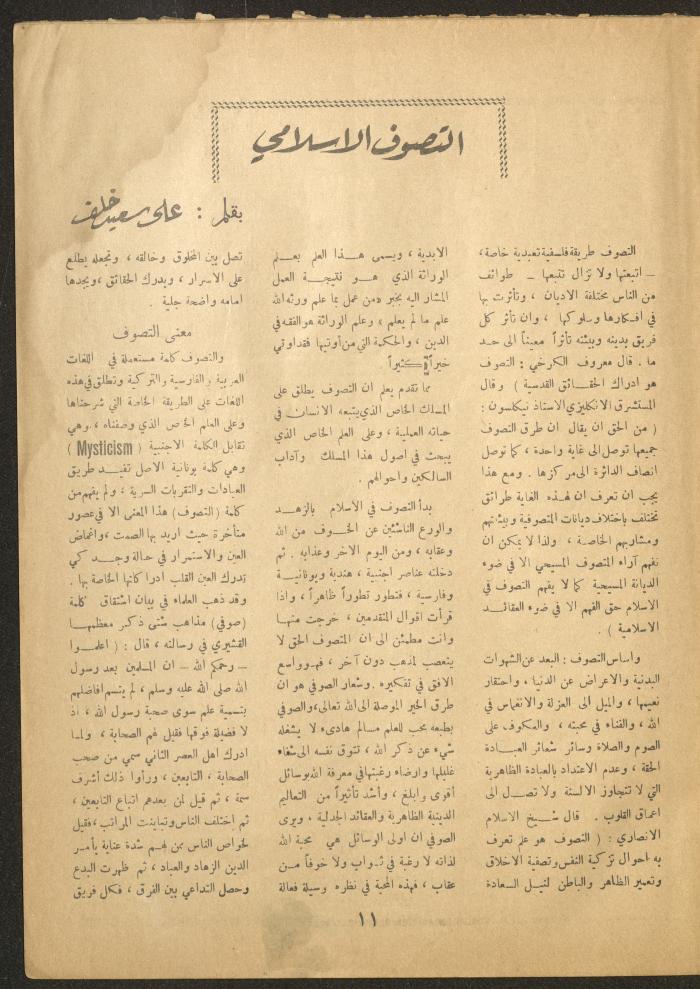 التصوف الاسلامي
بقلم : علي سعيد خلف
التصوف طريقة فلسفية تعبدية خاصة،
– اتبعتها ولا تزال تتبعها – طوائف
من الناس مختلفة الاديان ، وتأثرت بها
في افكارها وسلوكها ، وان تأثر كل
فريق بدينه وبيئته تأثراً معيناً الى حد
ما . قال معروف الكرخي : التصوف
هو ادراك الحقائق القدسية ) وقال
المستشرق الانكليزي الاستاذ نيكلسون :
( من الحق ان يقال ان طرق التصوف
جميعها توصل الى غاية واحدة ، كما توصل
انصاف الدائرة الى مركزها . ومع هذا
يجب ان تعرف ان لهذه الغاية طرائق
تختلف باختلاف ديانات المتصوفة وبيئتهم
ومشاربهم الخاصة ، ولذا لا يمكن ان
نفهم آراء المتصوف المسيحي الا في ضوء
الديانة المسيحية كما لا يفهم التصوف في
الاسلام حق الفهم الا في ضوء العقائد
الاسلامية ) .
واساس التصوف : البعد عن الشهوات
البدنية والاعراض عن الدنيا ، واحتقار
نعيمها ، والميل الى العزلة والانغماس في
الله ، والفناء في محبته ، والعكوف على
الصوم والصلاة وسائر شعائر العبادة
الحقة ، وعدم الاعتداد بالعبادة الظاهرية
التي لا تتجاوز الالسنة ولا تصل الى
اعماق القلوب . قال شيخ الاسلام
الانصاري : ( التصوف هو علم تعرف
به احوال تزكية النفس وتصفية الاخلاق
وتعمير الظاهر والباطن لنيل السعادة
الابدية ، ويسمى هذا العلم بعلم
الوراثة الذي هو نتيجة العمل
المشار اليه بخبر ‹من عمل بما علم ورثه الله
علم ما لم يعلم » وعلم الوراثة هو الفقه في
الدين ، والحكمة التي من أوتيها فقد اوتي
خيراً كثيراً
مما تقدم يعلم ان التصوف يطلق على
المسلك الخاص الذي يتبعه الانسان في
حياته العملية ، وعلى العلم الخاص الذي
يبحث في اصول هذا المسلك وآداب
السالكين واحوالهم .
بدأ التصوف في الاسلام بالزهد
والورع الناشئين عن الخوف من الله
وعقابه ، ومن اليوم الاخر وعذابه . ثم
دخلته عناصر اجنبية ، هندية ويونانية
وفارسية ، فتطور تطوراً ظاهراً ، واذا
قرأت اقوال المتقدمين ، خرجت منها
وانت مطمئن الى ان المتصوف الحق لا
يتعصب لمذهب دون آخر ، فهو واسع
الافق في تفكيره . وشعار الصوفي هو ان
طرق الخير الموصلة الى الله تعالى، والصوفي
بطبعه محب للعلم مسالم هادىء لا يشغله
شيء عن ذكر الله ، تتوق نفسه الى شفاء
غليلها وارضاء رغبتها في معرفة الله بوسائل
أقوى وابلغ ، وأشد تأثيراً من التعاليم
الدينية الظاهرية والعقائد الجدلية . ويرى
الصوفي ان اولى الوسائل هي محبة الله
لذاته لا رغبة في ثواب ولا خوفاً من
عقاب ، فهذه المحبة في نظره وسيلة فعالة
تصل بين المخلوق وخالقه ، وتجعله يطلع
على الاسرار ، ويدرك الحقائق ، ويجدها
امامه واضحة جلية .
معنى التصوف
والتصوف كلمة مستعملة في اللغات
العربية والفارسية والتركية وتطلق في هذه
اللغات على الطريقة الخاصة التي شرحناها
وعلى العلم الخاص الذي وصفناه ، وهي
تقابل الكلمة الاجنبية ( Mysticism )
وهي كلمة يونانية الاصل تفيد طريق
العبادات والتقربات السرية ، ولم يفهم من
كلمة (التصوف) هذا المعنى الا في عصور
متأخرة حيث اريد بها الصمت ، واغماض
العين والاستمرار في حالة وجد كي
تدرك العين القلب ادراكاتها الخاصة بها .
وقد ذهب العلماء في بيان اشتقاق كلمة
(صوفي) مذاهب شتى ذكر معظمها
القشيري في رسالته ، قال : ( اعلموا
– رحمكم الله – ان المسلمين بعد رسول
الله صلى الله عليه وسلم ، لم يتسم افاضلهم
بتسمية علم سوى صحبة رسول الله ، اذ
لا فضيلة فوقها فقيل لهم الصحابة ، ولما
ادرك اهل العصر الثاني سمي من صحب
الصحابة ، التابعين ، ورأوا ذلك أشرف
سمة ، ثم قيل لمن بعدهم اتباع التابعين ،
ثم اختلف الناس وتباينت المراتب ، فقيل
لخواص الناس ممن لهم شدة عناية بأمر
الدين الزهاد والعباد ، ثم ظهرت البدع
وحصل التداعي بين الفرق ، فكل فريق
١١